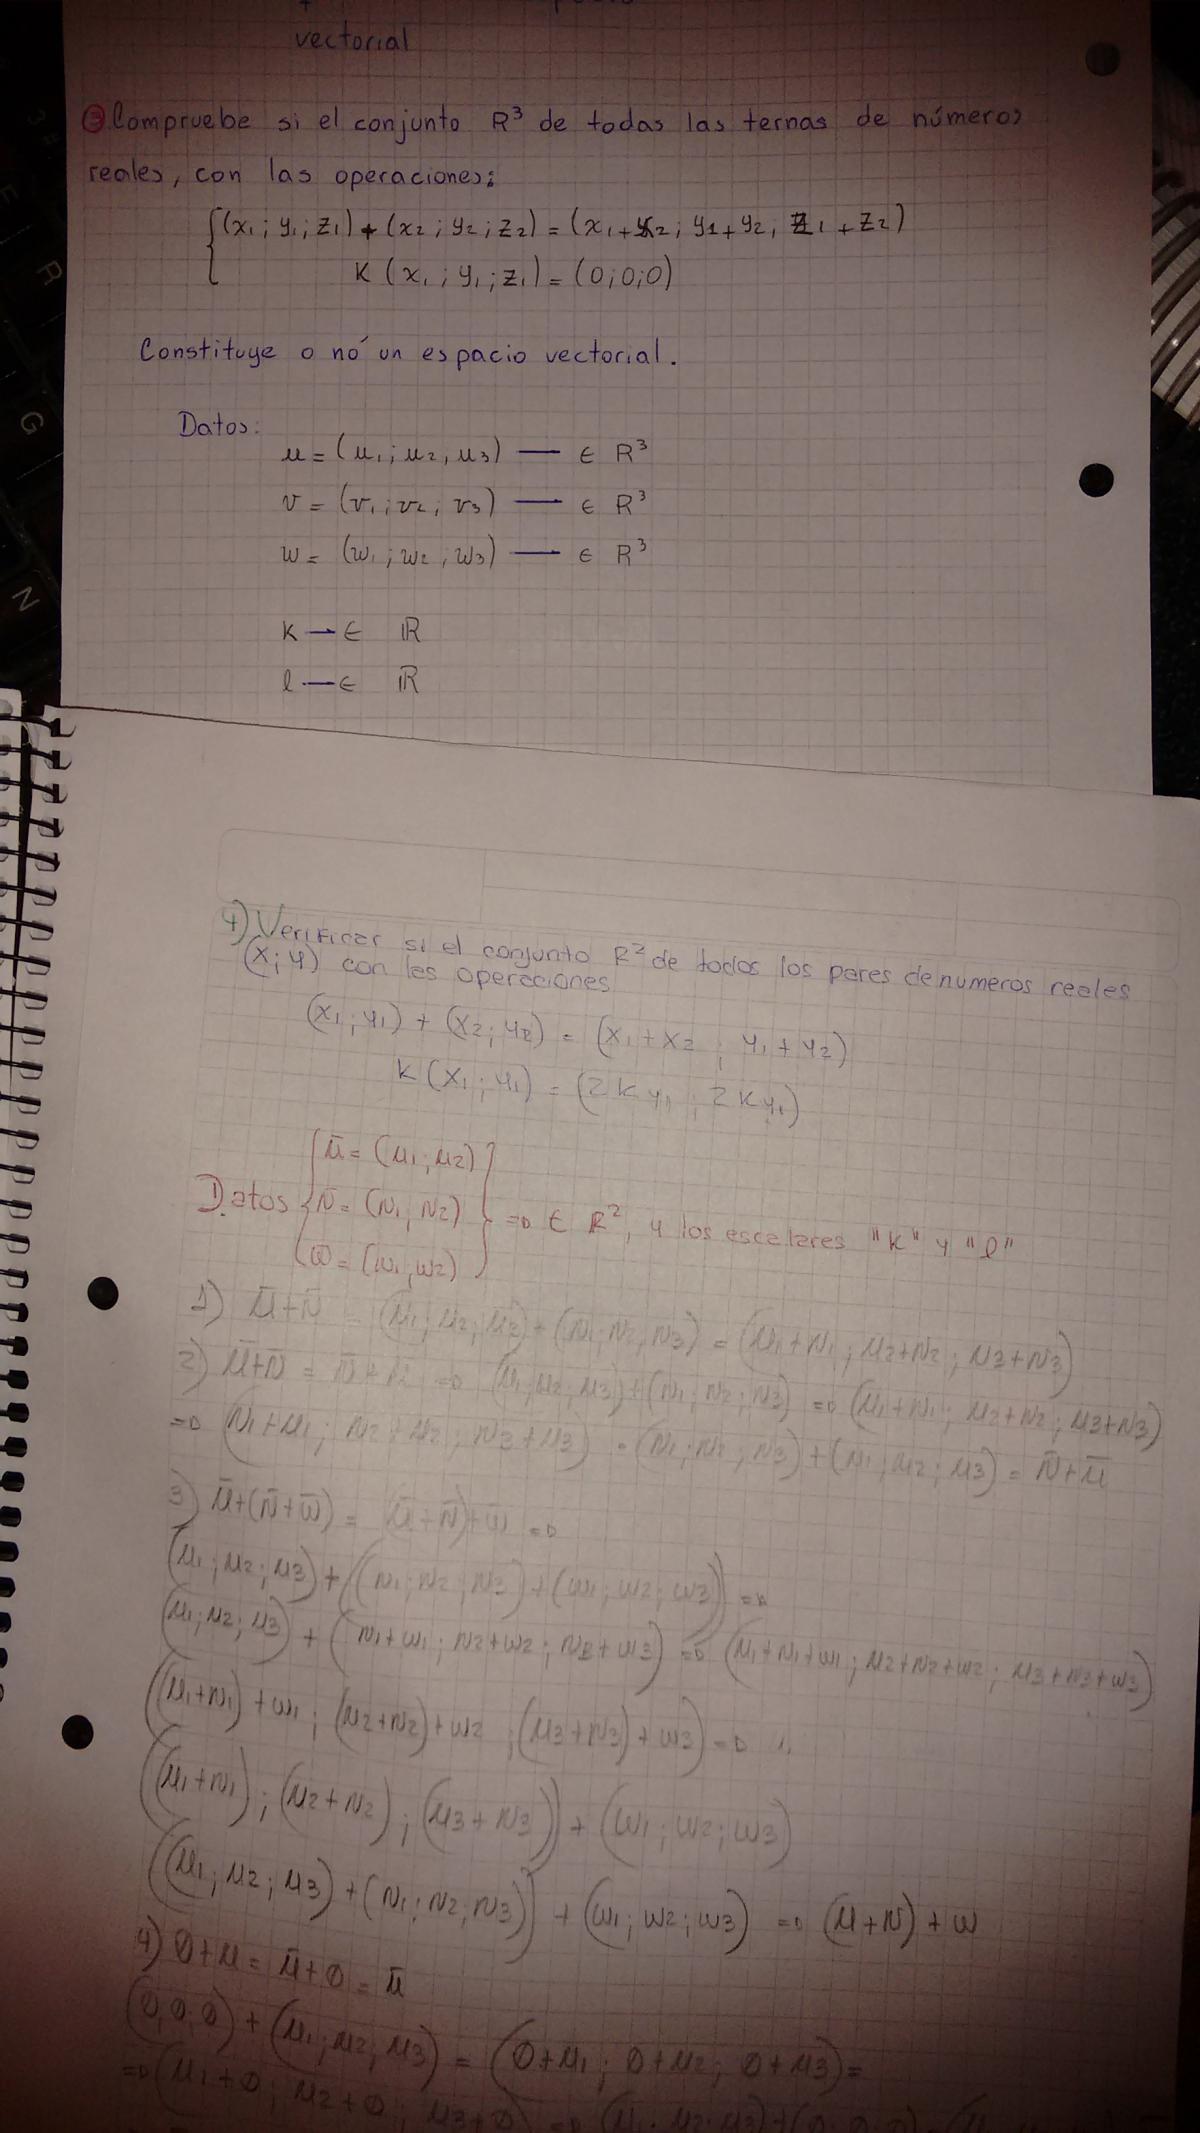 vectorial
③ Compruebe si el conjunto R³ de todas las ternas de números
reales, con las operaciones:
(x₁; y₁; z₁) + (x₂; y₂; z₂) = (x₁+x₂; y₁+y₂; z₁+z₂)
K (x₁; y₁; z₁) = (0; 0; 0)
Constituye o no un espacio vectorial.
Datos:
u = (u₁; u₂, u₃) — ∈ R³
v = (v₁; v₂; v₃) — ∈ R³
w = (w₁; w₂, w₃) — ∈ R³
K — ∈ ℝ
l — ∈ ℝ
4) Verificar si el conjunto R² de todos los pares de numeros reales
(x; y) con las operaciones
(x₁; y₁) + (x₂; y₂) = (x₁+x₂; y₁+y₂)
K (x₁; y₁) = (2ky₁; 2ky₁)
ū = (u₁; u₂)
Datos v̄ = (v₁; v₂) ⇒ ∈ R², y los escalares "K" y "l"
w̄ = (w₁; w₂)
1) ū+v̄ = (u₁; u₂; u₃) + (v₁; v₂, v₃) = (u₁+v₁; u₂+v₂; u₃+v₃)
2) ū+v̄ = v̄+ū ⇒ (u₁; u₂; u₃) + (v₁; v₂; v₃) ⇒ (u₁+v₁; u₂+v₂; u₃+v₃)
⇒ (v₁+u₁; v₂+u₂; v₃+u₃) = (v₁; v₂; v₃) + (u₁; u₂; u₃) = v̄+ū
3) ū+(v̄+w̄) = (ū+v̄)+w̄ ⇒
(u₁; u₂; u₃) + ((v₁; v₂; v₃) + (w₁; w₂; w₃)) ⇒
(u₁; u₂; u₃) + (v₁+w₁; v₂+w₂; v₃+w₃) ⇒ (u₁+v₁+w₁; u₂+v₂+w₂; u₃+v₃+w₃)
((u₁+v₁)+w₁; (u₂+v₂)+w₂; (u₃+v₃)+w₃) ⇒
((u₁+v₁); (u₂+v₂); (u₃+v₃)) + (w₁; w₂; w₃)
((u₁; u₂; u₃) + (v₁; v₂; v₃)) + (w₁; w₂; w₃) ⇒ (u+v)+w
4) 0+u = ū+0 = ū
(0, 0, 0) + (u₁; u₂; u₃) = (0+u₁; 0+u₂; 0+u₃) =
⇒ (u₁+0; u₂+0; u₃+0)